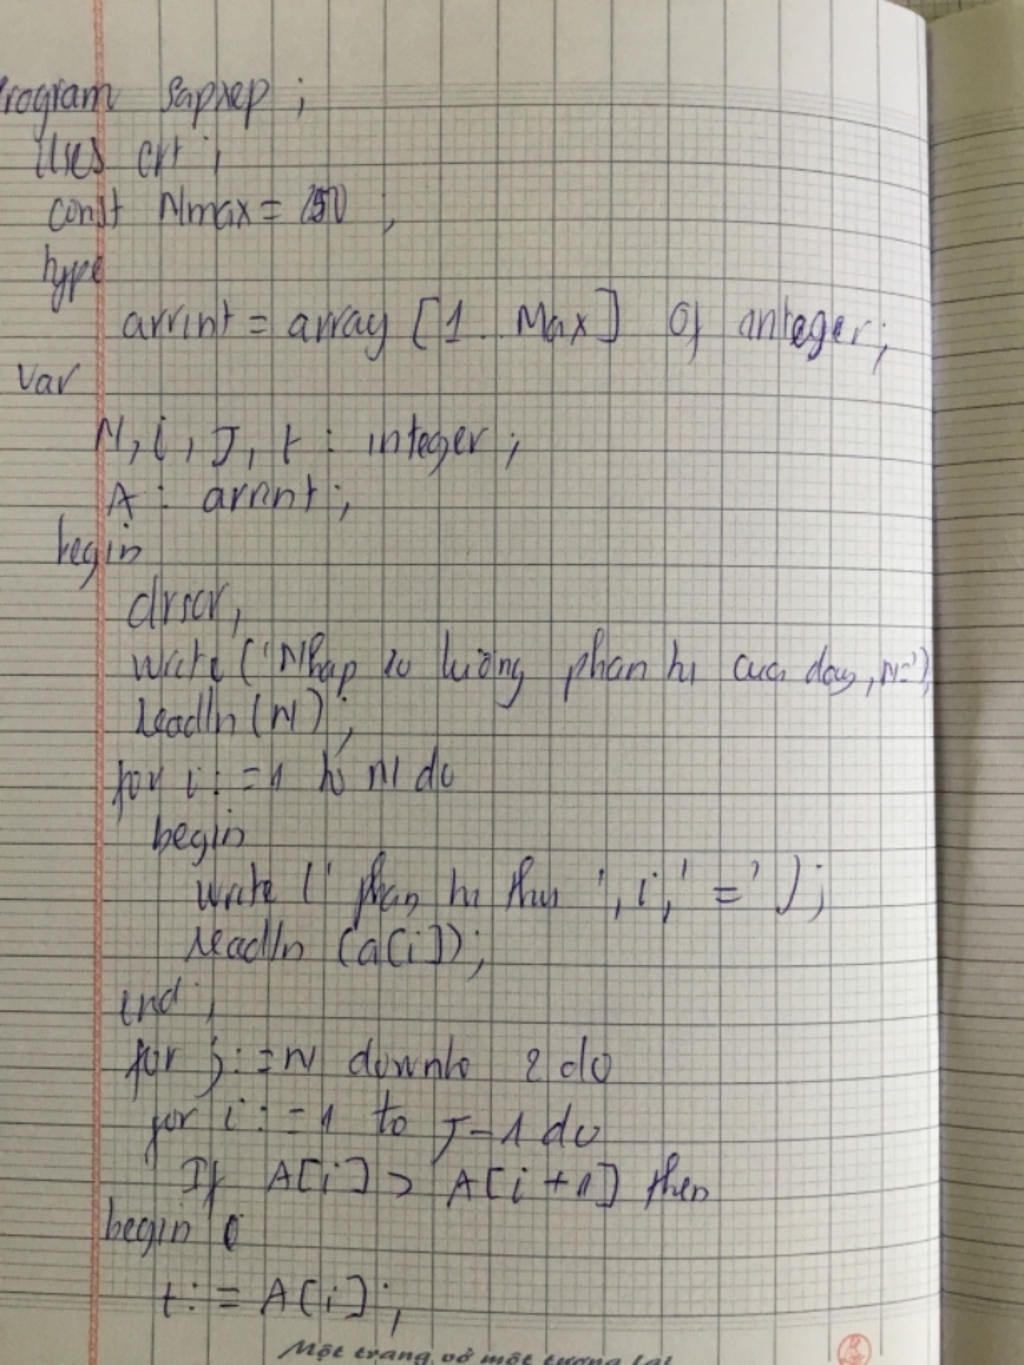 program sapxep ;
Uses crt ;
const Nmax = 250 ;
type
arrint = array [1 .. Max] Of integer;
var
N, i, J, t : integer ;
A : arrint ;
begin
clrscr,
write ('Nhap so luong phan tu cua day, N=')
readln (N) ;
for i : = 1 to N do
begin
write (' phan tu thu ', i, ' = ' ) ;
readln (a[i]);
end ;
for j : = N downto 2 do
for i : = 1 to J - 1 do
If A[i] > A[i + 1] then
begin
t : = A[i] ;
Một trang vở một tương lai